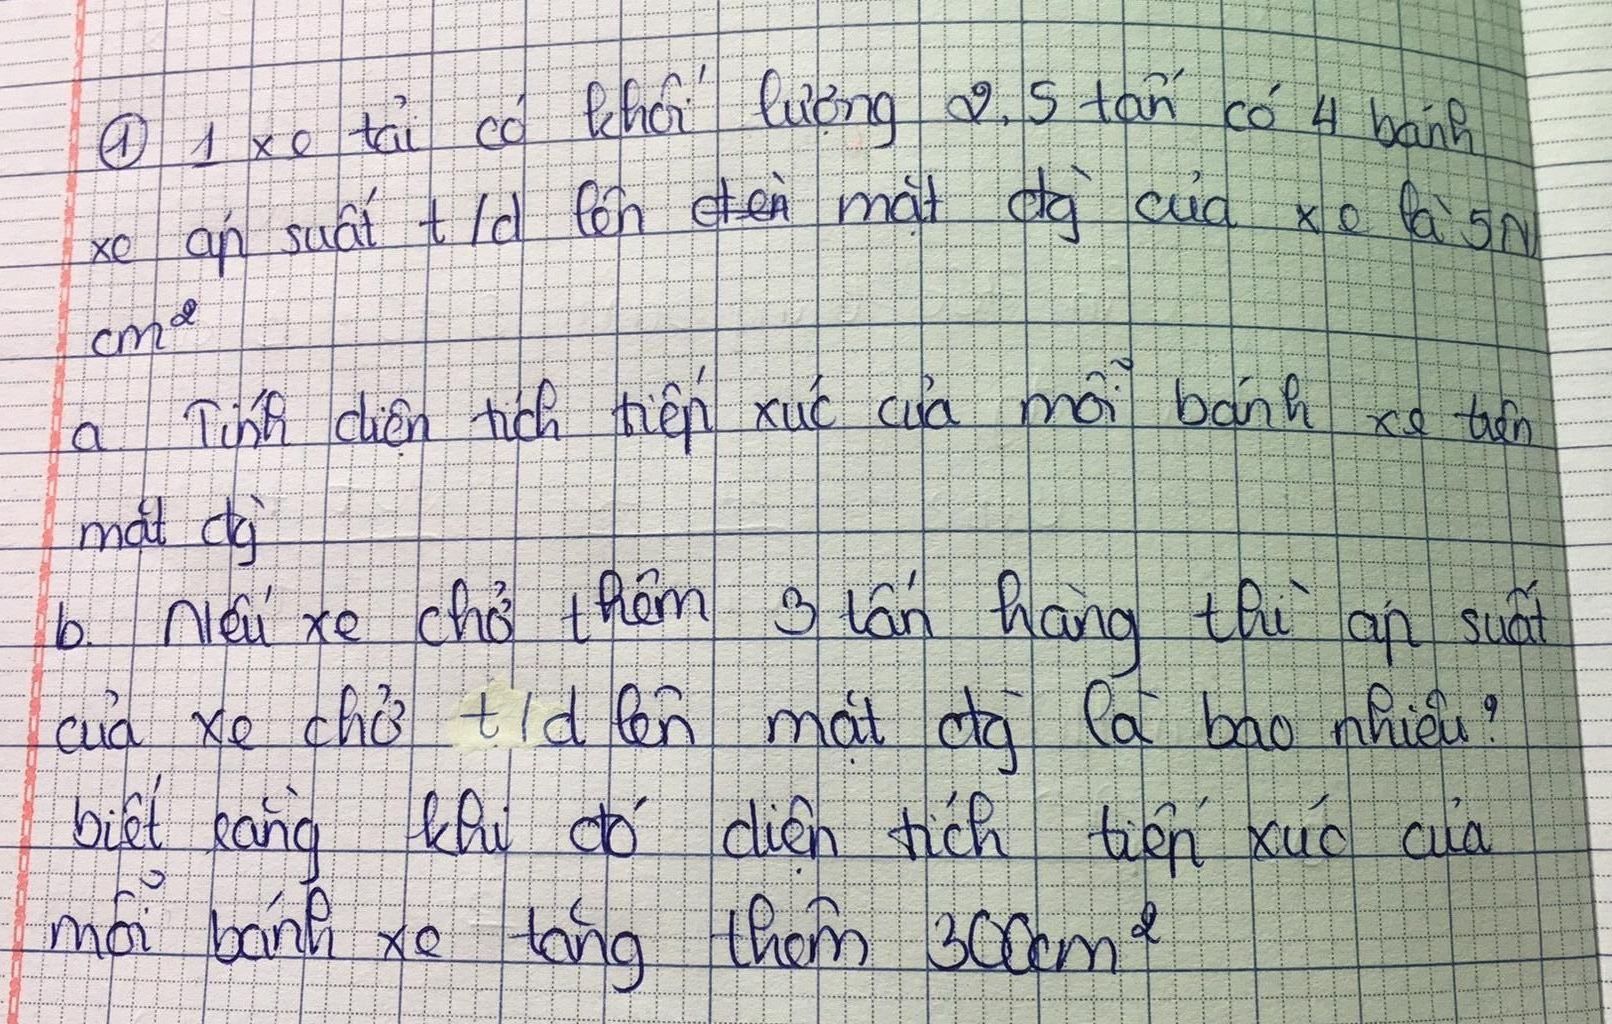 ① 1 xe tải có khối lượng 2,5 tấn có 4 bánh
xe áp suất t/d lên mặt đg của xe là 5N
cm²
a Tính diện tích tiếp xúc của mỗi bánh xe trên
mặt đg
b. Nếu xe chở thêm 3 tấn hàng thì áp suất
của xe chở t/d lên mặt đg là bao nhiêu?
biết rằng khi đó diện tích tiếp xúc của
mỗi bánh xe tăng thêm 300cm²